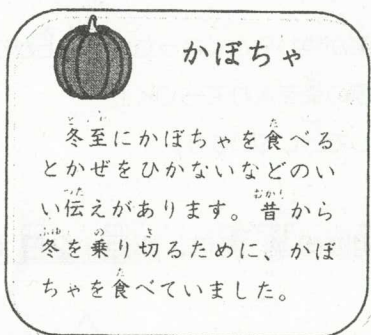 かぼちゃ
冬至にかぼちゃを食べる
とかぜをひかないなどのい
い伝えがあります。昔から
冬を乗り切るために、かぼ
ちゃを食べていました。